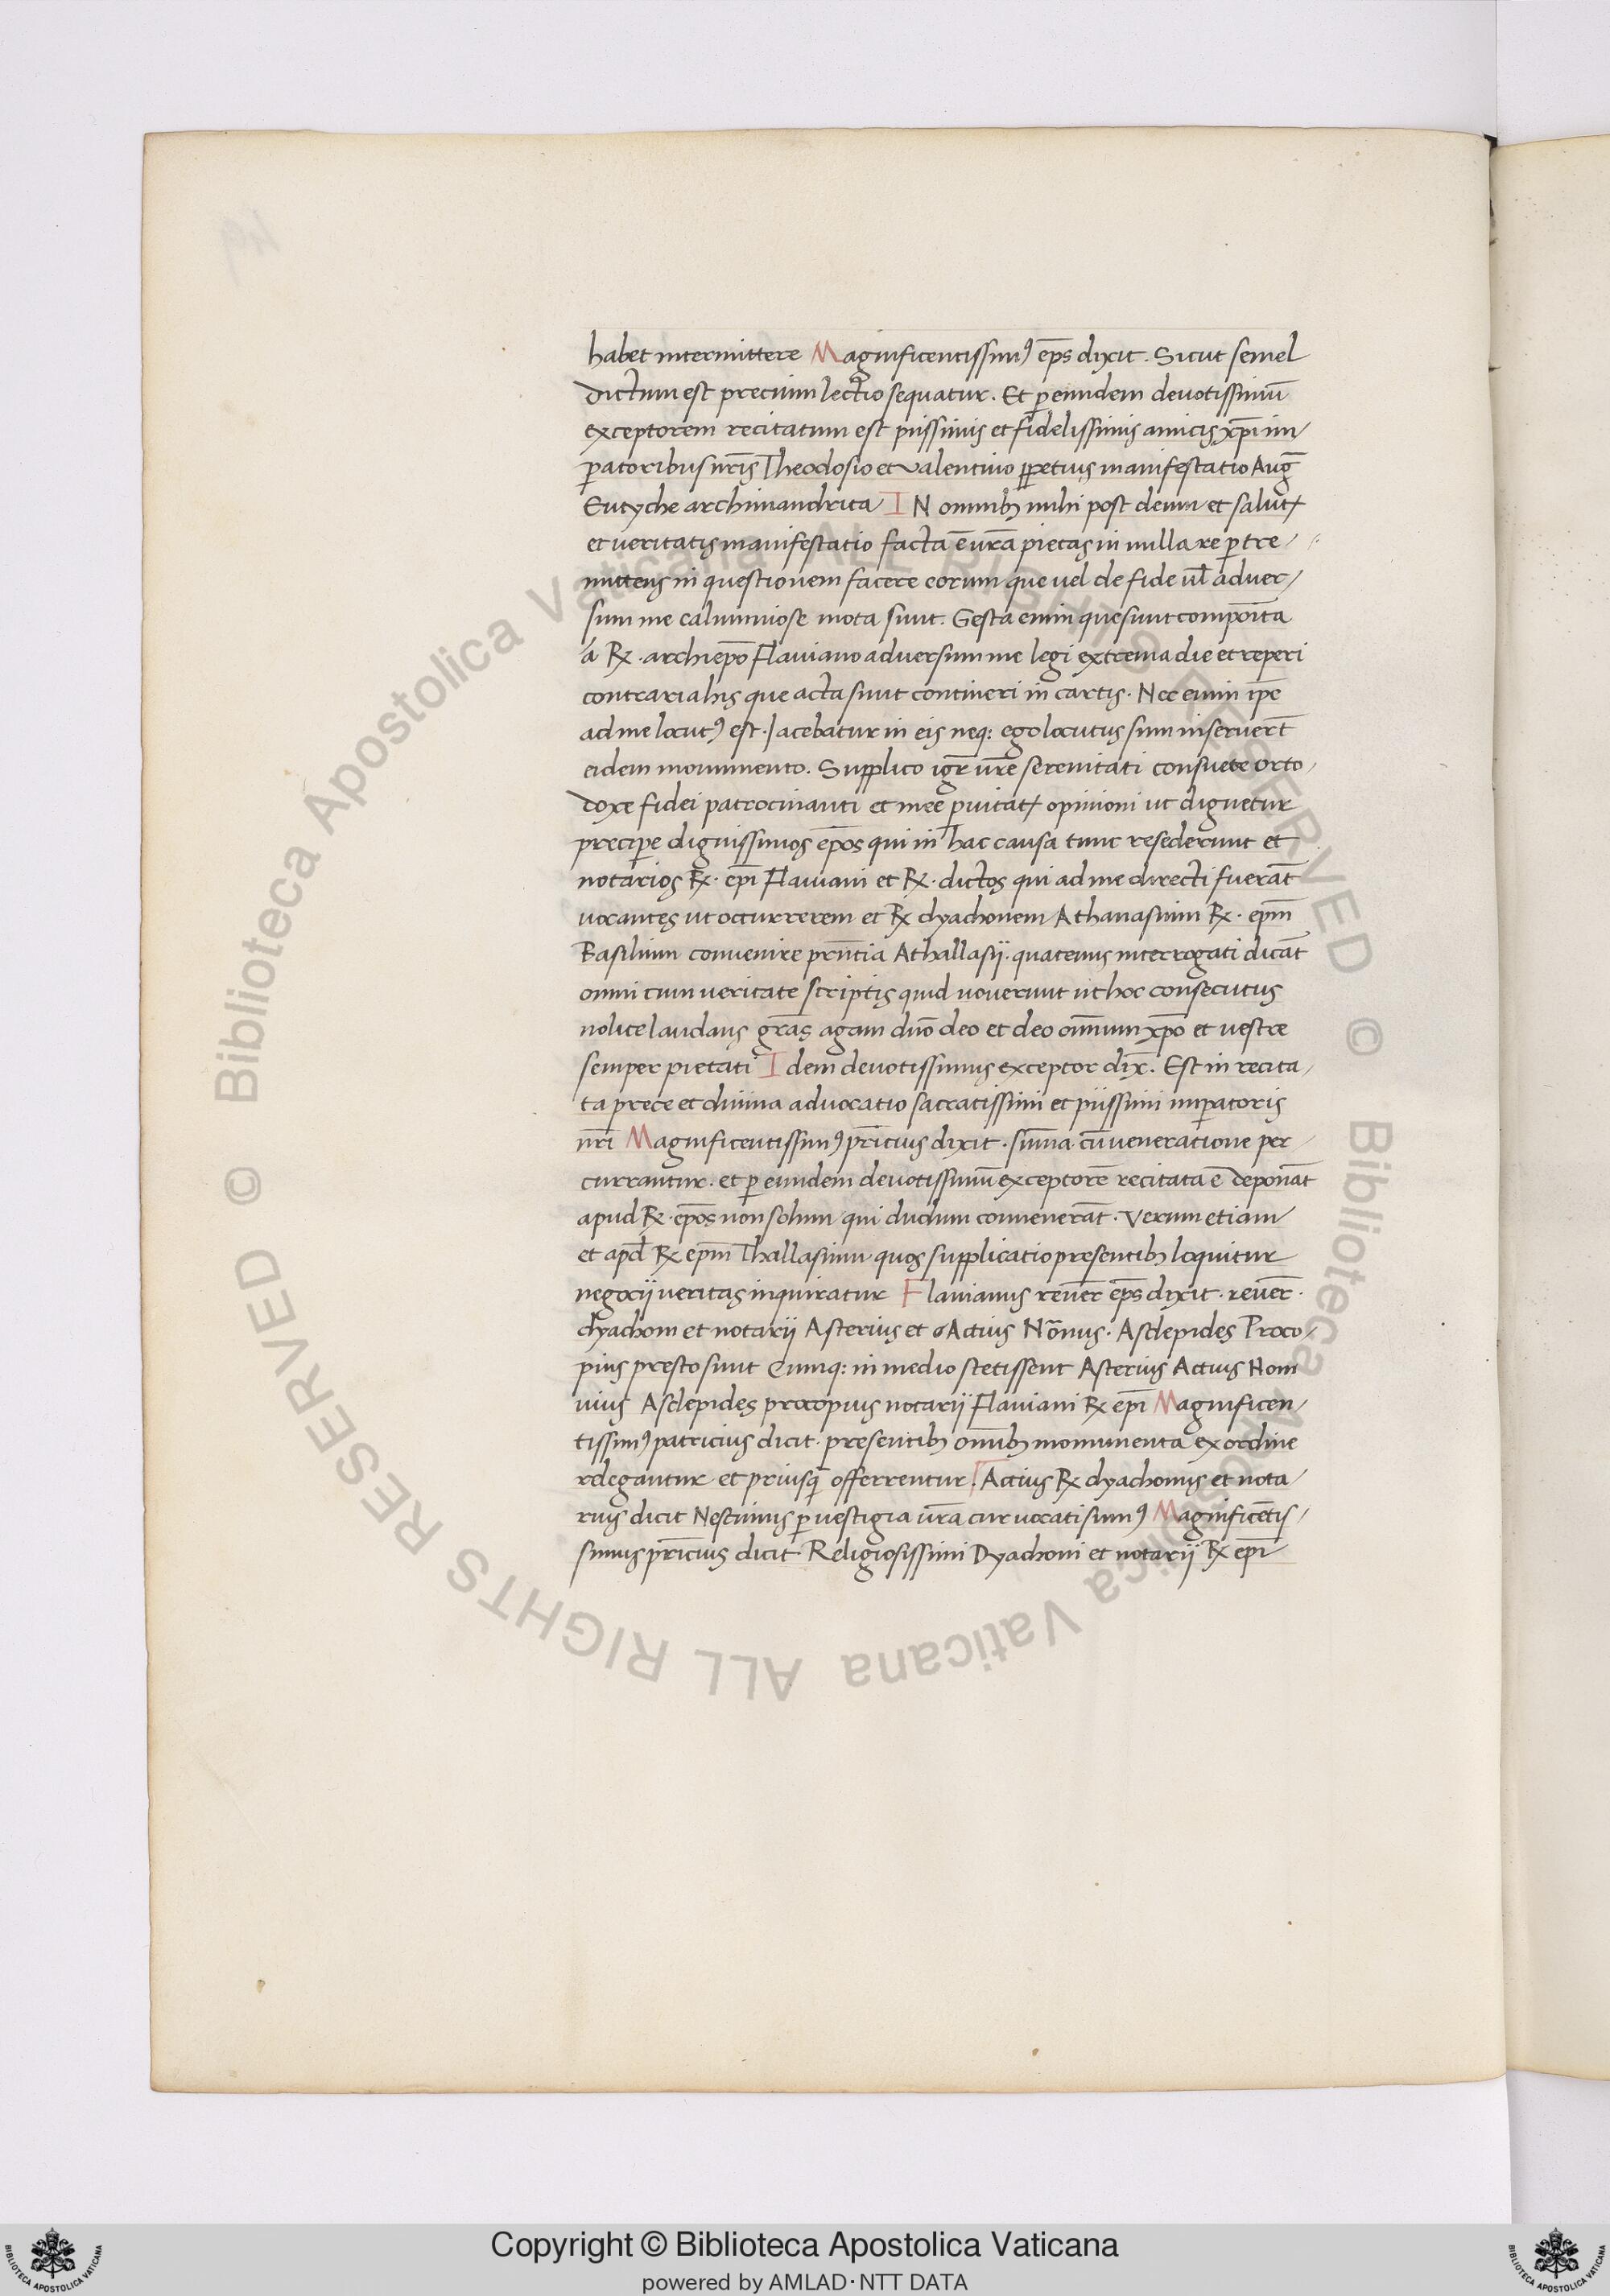 habet intermittere Magnificentissim⁹ ep̄s dixit. Sicut semel
dictum est precum lectio sequatur. Et p eundem deuotissimū
exceptorem recitatum est piissimis et fidelissimis amicis xp̄i im
patoribus nr̄is Theodosio et Valentino ppetuis manifestatio Auḡ
Eutyche archimandrita IN omnibꝫ mihi post deum et salutꝭ
et ueritatis manifestatio facta ē ur̄a pietas in nulla re p tre
mittens in questionem facere eorum que uel de fide ul̄ aduer
sum me calumniose mota sunt. Gesta enim que sunt compoīta
a ℞. archiep̄o Flauiano adversum me legi extrema die et reperi
contraria his que acta sunt contineri in cartis. Nec enim ip̄e
ad me locut⁹ est. Iacebatur in eis neq: ego locutus sum inseruer̄t
eidem monumento. Supplico igr̄ ur̄e serenitati consuete orto
doxe fidei patrocinanti et mee puitatꝭ opinioni ut dignetur
precipe dignissimos ep̄os qui in hac causa tunc resederunt et
notarios ℞. ep̄i Flauiani et ℞. dictos qui ad me directi fuerāt
uocantes ut occurrerem et ℞ dyachonem Athanasium ℞. ep̄m
Basilium conuenire prn̄tia Athallasij. quatenus interrogati dicāt
omni cum ueritate scriptis quid nouerunt ut hoc consecutus
nolite laudans gr̄as agam dn̄o deo et deo om̄num xp̄o et uestre
semper pietati Idem deuotissimus exceptor dix̄. Est in recita
ta prece et diuina aduocatio sacratissimi et piissimi impatoris
nr̄i Magnificentissim⁹ pr̄icius dixit. sūma cū ueneratione per
currantur. et p eundem deuotissimū exceptorē recitata ē deponāt
apud ℞. ep̄os non solum qui dudum conuenerāt. Verum etiam
et apd̄ ℞ ep̄m Thallasium quos supplicatio presentibꝫ loquitur
negocij ueritas inquiratur Flauianus reuer̄ ep̄s dixit. reuer̄.
dyachom et notarij Asterius et Actius Nōnus. Asclepides Proco
pius presto sunt Cumq: in medio stetissent Asterius Actius Nom
nius Asclepides procopius notarij Flauiani ℞ ep̄i Magnificen
tissim⁹ patricius dicit. presentibꝫ om̄ibꝫ monumenta ex ordine
relegantur et priusq̄ offerrentur. Actius ℞ dyachonus et nota
rius dicit Nescimus p uestigia ur̄a cur uocati sum⁹ Magnificētis
simus pr̄icius dicit Religiosissimi Dyachoni et notarij ℞ ep̄i
Copyright © Biblioteca Apostolica Vaticana
powered by AMLAD·NTT DATA
© Biblioteca Apostolica Vaticana ALL RIGHTS RESERVED
© Biblioteca Apostolica Vaticana ALL RIGHTS RESERVED
BIBLIOTECA APOSTOLICA VATICANA
BIBLIOTECA APOSTOLICA VATICANA